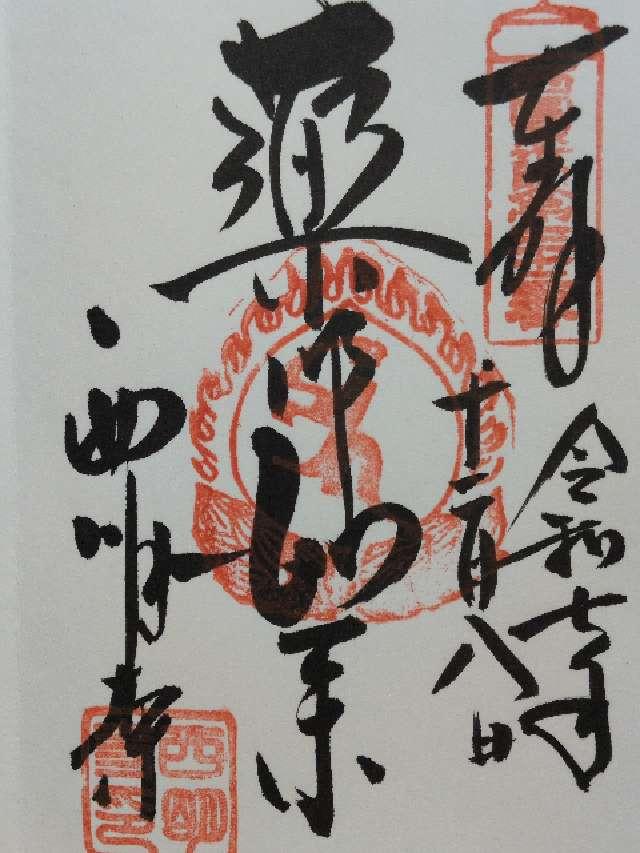 奉拝
令和七年
十二月八日
薬師如来
西明寺
西明寺印